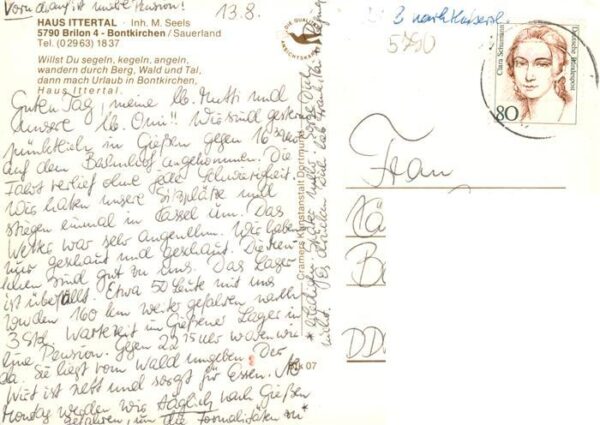 Vorn drauf ist unsere Pension!
13.8.
HAUS ITTERTAL · Inh. M. Seels
5790 Brilon 4 - Bontkirchen / Sauerland
Tel. (0 29 63) 18 37
Willst Du segeln, kegeln, angeln,
wandern durch Berg, Wald und Tal,
dann mach Urlaub in Bontkirchen,
Haus Ittertal.
Guten Tag, meine lb. Mutti und
unsere lb. Omi! Wir sind gestern
pünktlich in Gießen gegen 16
auf dem Bahnhof angekommen. Die
Fahrt verlief ohne jede Schwierigkeit.
Wir hatten unsere Sitzplätze und
stiegen einmal in Kassel um. Das
Wetter war sehr angenehm. Wir haben
nur geschaut und geschaut. Die Men-
schen sind gut zu uns. Das Lager
ist überfüllt. Etwa 50 Leute mit uns
wurden 160 km weiter gefahren nach
3 Std. Wartezeit im Gießener Lager in
eine Pension. Gegen 22 15 Uhr waren wir
da. Sie liegt vom Wald umgeben. Der
Wirt ist nett und sorgt für Essen. Ab
Montag werden wir täglich nach Gießen
gefahren, um die Formalitäten zu
Cramers Kunstanstalt Dortmund
DIE QUALITÄTS
ANSICHTSKARTE
07
5790
Clara Schumann
Deutsche Bundespost
80
Frau
DD